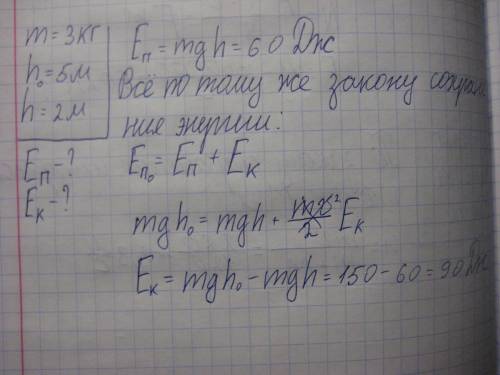 m = 3кг
h₀ = 5м
h = 2м
Eп - ?
Eк - ?
Eп = mgh = 60 Дж
Всё по тому же закону сохране
ния энергии:
Eп₀ = Eп + Eк
mgh₀ = mgh + Eк
Eк = mgh₀ - mgh = 150 - 60 = 90 Дж